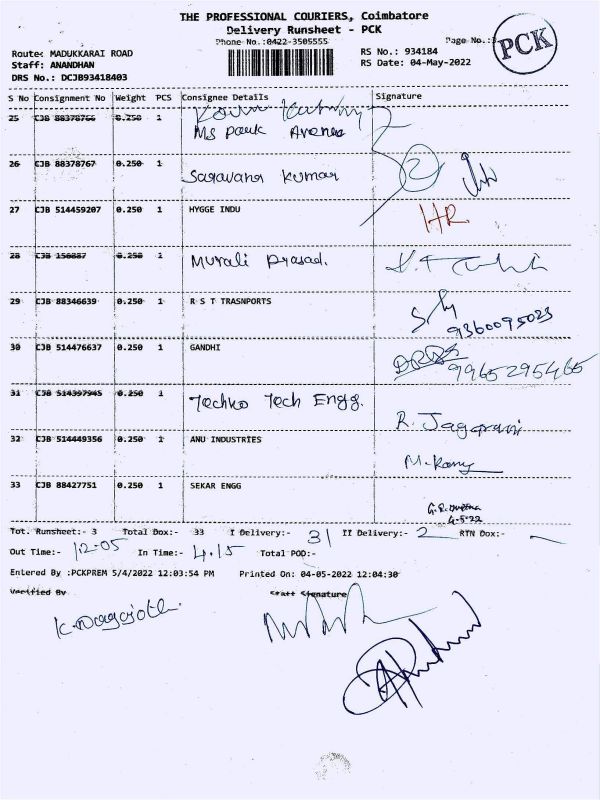 THE PROFESSIONAL COURIERS, Coimbatore
Delivery Runsheet - PCK
Phone No.:0422-3505555
Page No.:3
PCK
Route: MADUKKARAI ROAD
Staff: ANANDHAN
DRS No.: DCJB93418403
RS No.: 934184
RS Date: 04-May-2022
S No Consignment No Weight PCS Consignee Details Signature
25 CJB 88378766 0.250 1 Ms Park Avenue
26 CJB 88378767 0.250 1 Saravana Kumar 2
27 CJB 514459207 0.250 1 HYGGE INDU HR
28 CJB 156887 0.250 1 Murali Prasad.
29 CJB 88346639 0.250 1 R S T TRASNPORTS 9360095023
30 CJB 514476637 0.250 1 GANDHI 9965295465
31 CJB 514397945 0.250 1 Techno Tech Engg. R. Jagarani
32 CJB 514449356 0.250 1 ANU INDUSTRIES
33 CJB 88427751 0.250 1 SEKAR ENGG 4-5-22
Tot. Runsheet:- 3 Total Dox:- 33 I Delivery:- 31 II Delivery:- 2 RTN Dox:- -
Out Time:- 12-05 In Time:- 4.15 Total POD:-
Entered By :PCKPREM 5/4/2022 12:03:54 PM Printed On: 04-05-2022 12:04:30
Verified By Staff Signature